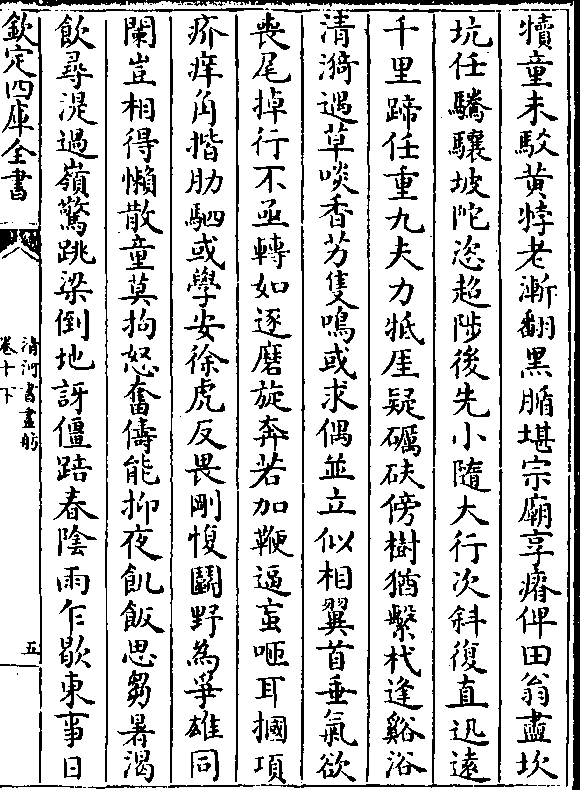 犢童未馭黄㹀老漸翻黒脜堪宗廟享瘠俾田翁盡坎
坑任驕驤坡陀恣超陟後先小隨大行次斜復直迅遠
千里蹄任重九夫力牴厓疑礪砆傍樹猶繫杙逢谿浴
清漪遇草啖香芳隻鳴或求偶並立似相翼首垂氣欲
喪尾掉行不亟轉如逐磨旋奔若加鞭逼蝱咂耳摑項
疥痒角揩肋駟或學安徐虎反畏剛愎鬬野為爭雄同
闌豈相得懶散童莫拘怒奮儔能抑夜飢飯思芻暑渴
飲尋湜過嶺驚跳梁倒地訝僵踣春陰雨乍歇東事日
欽定四庫全書
清河書畫舫
卷十下
五